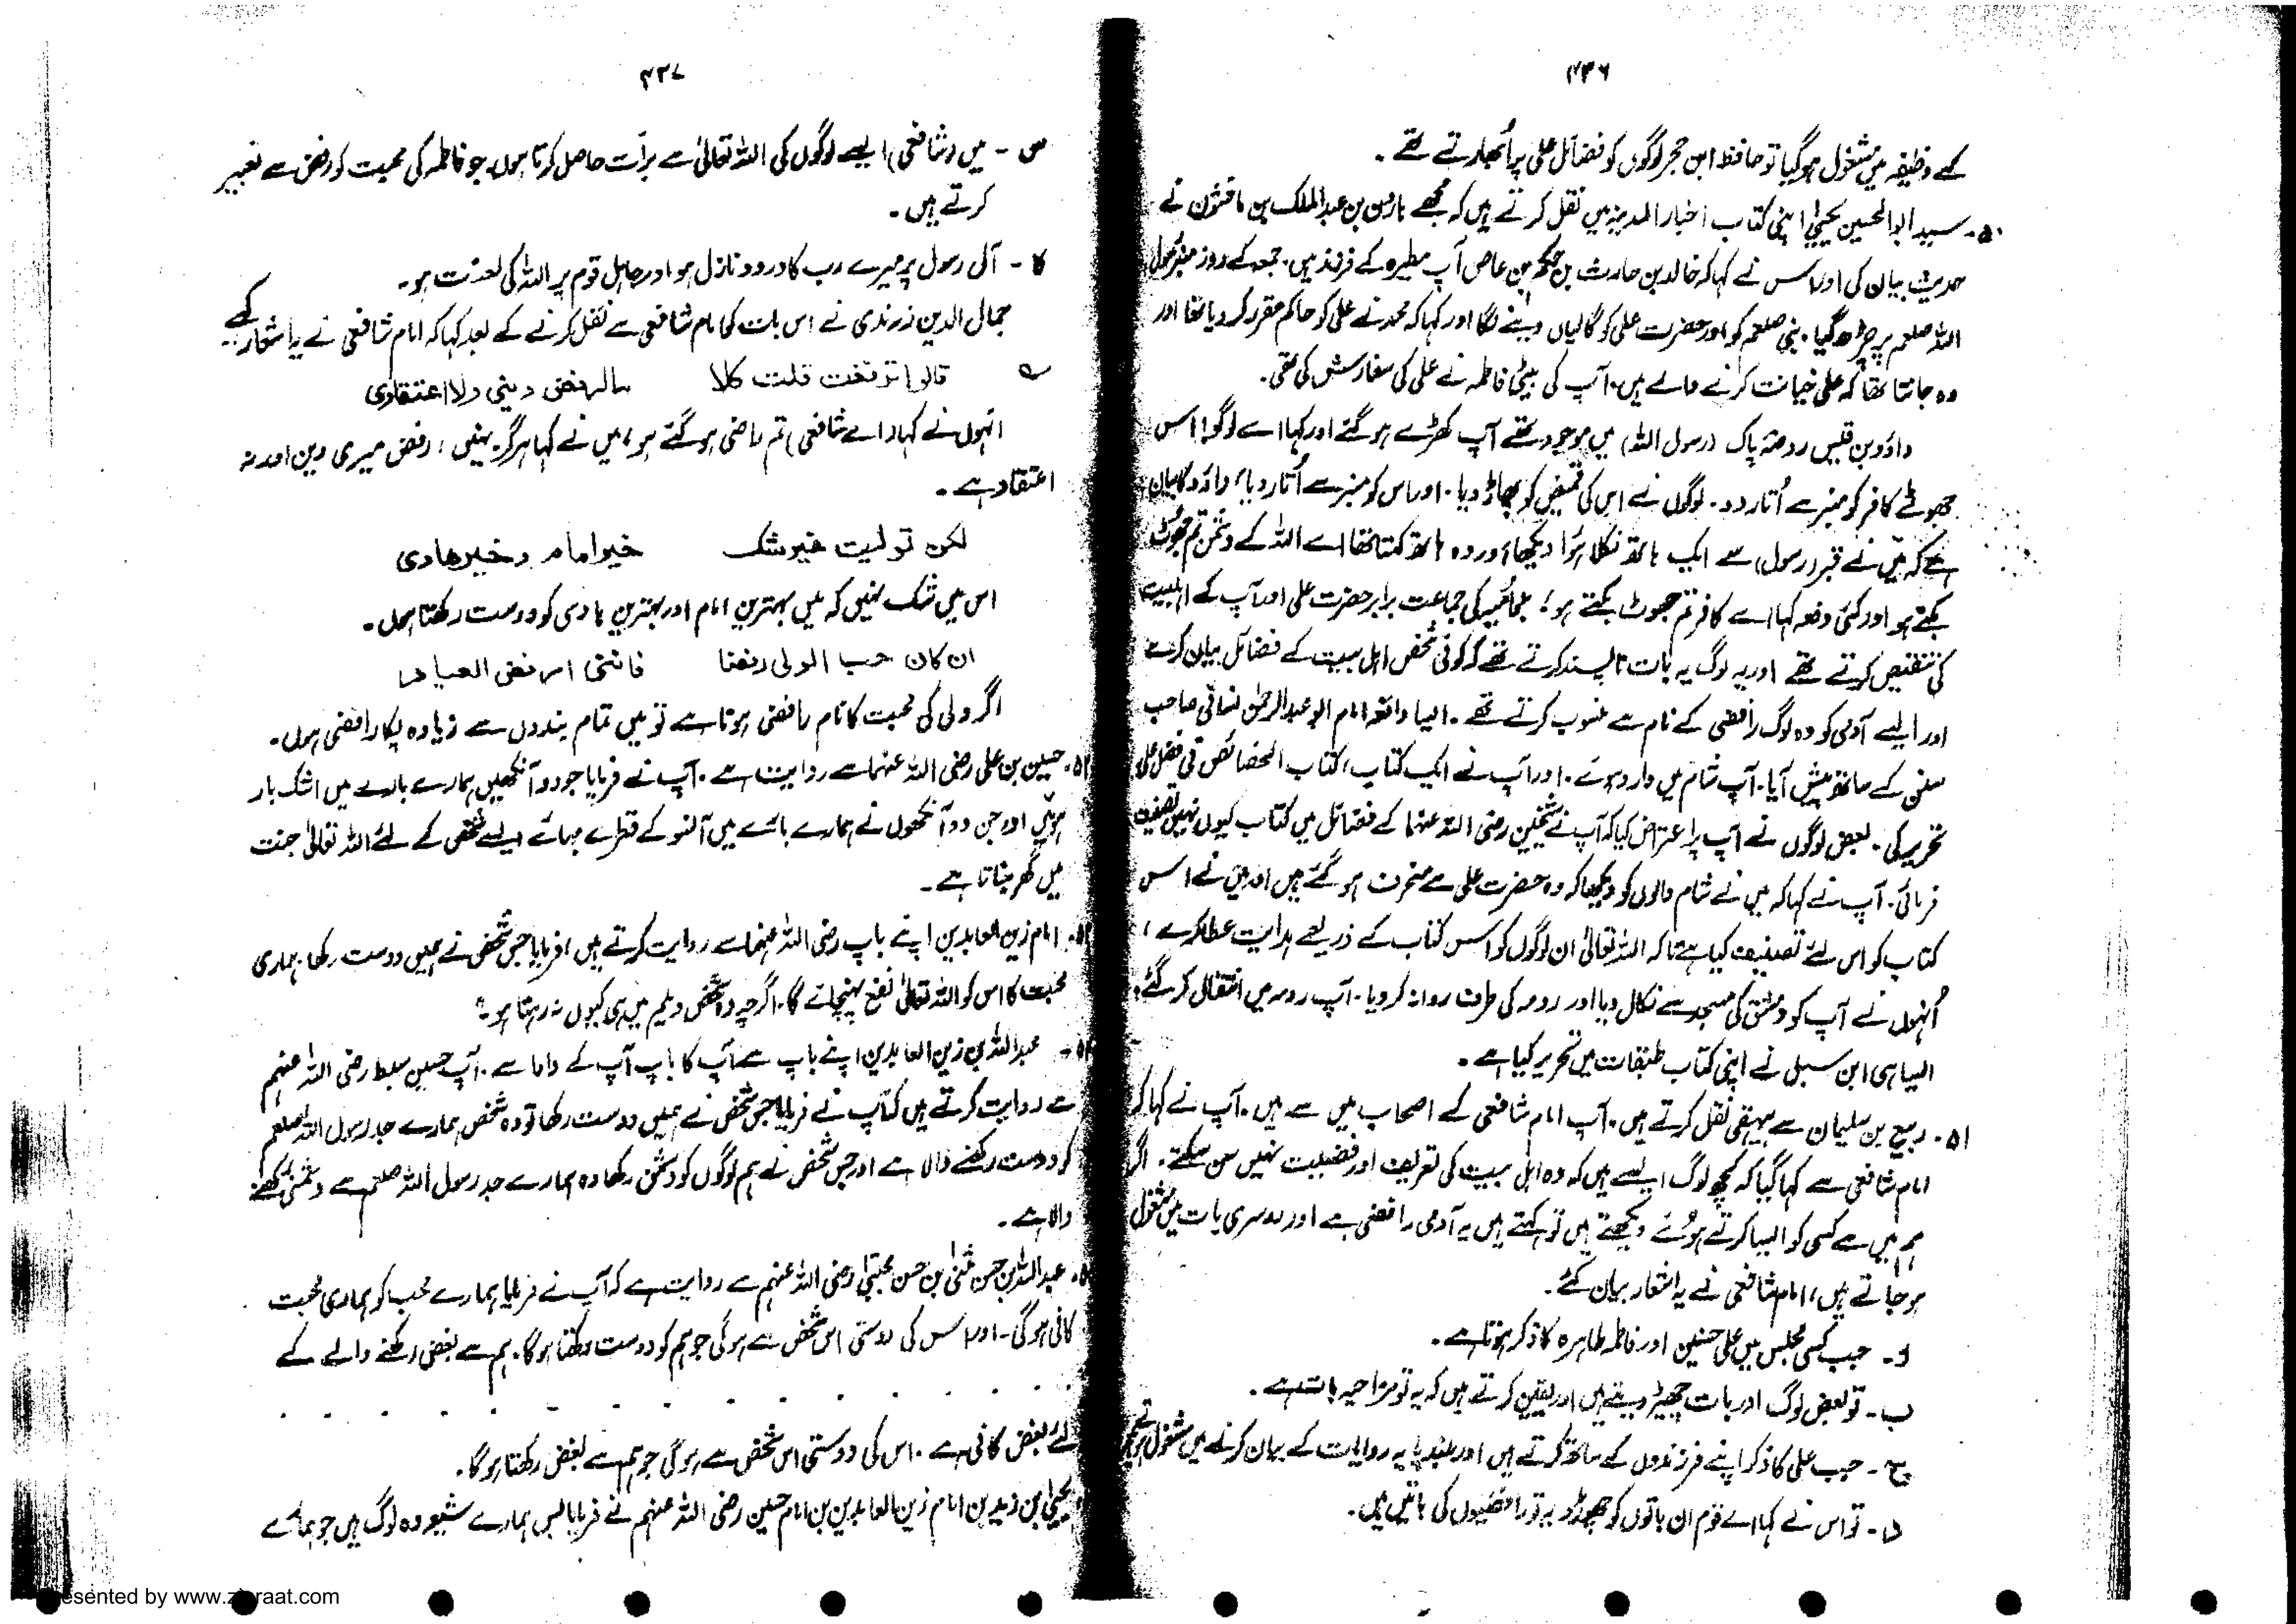 ۴۳۶
کے وظیفہ میں مشغول ہوگیا تو حافظ ابن حجر لوگوں کو فضائل علی پر اُبھارتے تھے ۔
۵۰۔ سید ابوالحسین یحییٰ اپنی کتاب اخبار المدینہ میں نقل کرتے ہیں کہ مجھے ہارون بن عبدالملک بن ماجشون نے
حدیث بیان کی اور اس نے کہا کہ خالد بن حارث بن حکم بن عاص آپ مطیرہ کے فرزند ہیں۔ جمعہ کے روز منبر رسول
اللہ صلعم پر چڑھ گیا۔ نبی صلعم کو اور حضرت علی کو گالیاں دینے لگا اور کہا کہ محمد نے علی کو حاکم مقرر کر دیا تھا اور
وہ جانتا تھا کہ علی خیانت کرنے والے ہیں۔ آپ کی بیٹی فاطمہ نے علی کی سفارش کی تھی۔
داؤد بن قیس روضۂ پاک (رسول اللہ) میں موجود تھے آپ کھڑے ہو گئے اور کہا اے لوگو! اس
جھوٹے کافر کو منبر سے اُتار دو۔ لوگوں نے اس کی قمیض کو پھاڑ دیا۔ اور اس کو منبر سے اُتار دیا؛ داؤد کا بیان
ہے کہ میں نے قبر (رسول) سے ایک ہاتھ نکلا ہوا دیکھا، اور وہ ہاتھ کہتا تھا اے اللہ کے دشمن تم جھوٹ
بکتے ہو اور کئی دفعہ کہا اے کافر تم جھوٹ بکتے ہو؛ کی جماعت برابر حضرت علی اور آپ کے اہلبیت
کی تنقیص کرتے تھے اور یہ لوگ یہ بات ناپسند کرتے تھے کہ کوئی شخص اہل بیت کے فضائل بیان کرے
اور ایسے آدمی کو وہ لوگ رافضی کے نام سے منسوب کرتے تھے۔ ایسا واقعہ امام ابو عبدالرحمٰن نسائی صاحب
سنن کے ساتھ پیش آیا۔ آپ شام میں وارد ہوئے۔ اور آپ نے ایک کتاب، کتاب الخصائص فی فضل علی
تحریر کی۔ بعض لوگوں نے آپ پر اعتراض کیا کہ آپ نے شیخین رضی اللہ عنہما کے فضائل میں کتاب کیوں نہیں تصنیف
فرمائی۔ آپ نے کہا کہ میں نے شام والوں کو دیکھا کہ وہ حضرت علی سے منحرف ہو گئے ہیں اور میں نے اس
کتاب کو اس لئے تصنیف کیا ہے تاکہ اللہ تعالیٰ ان لوگوں کو اس کتاب کے ذریعے ہدایت عطا کرے؛
اُنہوں نے آپ کو دمشق کی مسجد سے نکال دیا اور رومہ کی طرف روانہ کر دیا۔ آپ رومہ میں انتقال کر گئے؛
ایسا ہی ابن سبل نے اپنی کتاب طبقات میں تحریر کیا ہے۔
۵۱۔ ربیع بن سلیمان سے بیہقی نقل کرتے ہیں۔ آپ امام شافعی کے اصحاب میں سے ہیں۔ آپ نے کہا کہ
امام شافعی سے کہا گیا کہ کچھ لوگ ایسے ہیں کہ وہ اہل بیت کی تعریف اور فضیلت نہیں سن سکتے۔ اگر
ہم میں سے کسی کو ایسا کرتے ہوئے دیکھتے ہیں تو کہتے ہیں یہ آدمی رافضی ہے اور دوسری بات میں مشغول
ہو جاتے ہیں، امام شافعی نے یہ اشعار بیان کئے۔
و۔ جب کسی مجلس میں علی حسنین اور فاطمہ طاہرہ کا ذکر ہوتا ہے۔
ب۔ تو بعض لوگ اور بات چھیڑ دیتے ہیں اور یقین کرتے ہیں کہ یہ تو مزاحیہ بات ہے۔
ج۔ جب علی کا ذکر اپنے فرزندوں کے ساتھ کرتے ہیں اور بلند پایہ روایات کے بیان کرنے میں مشغول
د۔ تو اس نے کہا اے قوم ان باتوں کو چھوڑو یہ تو رافضیوں کی باتیں ہیں۔
۴۳۷
س۔ میں (شافعی) ایسے لوگوں کی اللہ تعالیٰ سے برأت حاصل کرتا ہوں جو فاطمہ کی محبت کو رفض سے تعبیر
کرتے ہیں۔
کا۔ آل رسول پر میرے رب کا درود نازل ہو اور جاہل قوم پر اللہ کی لعنت ہو۔
جمال الدین زرندی نے اس بات کی امام شافعی سے نقل کرنے کے بعد کہا کہ امام شافعی نے یہ اشعار کہے
قالوا ترفضت قلت کلا ما الرفض دینی ولا اعتقادی
انہوں نے کہا (اے شافعی) تم رافضی ہو گئے ہو، میں نے کہا ہرگز نہیں؛ رفض میری دین اور نہ
اعتقاد ہے۔
لکن تولیت غیر شک خیر امام وخیر هادی
اس میں شک نہیں کہ میں بہترین امام اور بہترین ہادی کو دوست رکھتا ہوں۔
ان کان حب الولی رفضا فاننی ارفض العباد
اگر ولی کی محبت کا نام رافضی ہوتا ہے تو میں تمام بندوں سے زیادہ پکا رافضی ہوں۔
حسین بن علی رضی اللہ عنہما سے روایت ہے۔ آپ نے فرمایا جو دو آنکھیں ہمارے بارے میں اشک بار
ہوئیں اور جن دو آنکھوں نے ہمارے بارے میں آنسو کے قطرے بہائے ایسے شخص کے لئے اللہ تعالیٰ جنت
میں گھر بناتا ہے۔
امام زین العابدین اپنے باپ رضی اللہ عنہما سے روایت کرتے ہیں، فرمایا جس شخص نے ہمیں دوست رکھا، ہماری
محبت کا اس کو اللہ تعالیٰ نفع پہنچائے گا۔ اگرچہ وہ شخص دیلم میں ہی کیوں نہ رہتا ہو؟
عبداللہ بن زین العابدین اپنے باپ سے آپ کا باپ آپ کے دادا سے۔ آپ حسین سبط رضی اللہ عنہم
سے روایت کرتے ہیں کہ آپ نے فرمایا جس شخص نے ہمیں دوست رکھا تو وہ شخص ہمارے جد رسول اللہ صلعم
کو دوست رکھنے والا ہے اور جس شخص نے ہم لوگوں کو دشمن رکھا وہ ہمارے جد رسول اللہ صلعم سے دشمنی رکھنے
والا ہے۔
عبداللہ بن حسن مثنیٰ بن حسن مجتبیٰ رضی اللہ عنہم سے روایت ہے کہ آپ نے فرمایا ہمارے محب کو ہماری محبت
کافی ہوگی۔ اور اس کی دوستی اس شخص سے ہوگی جو ہم کو دوست رکھتا ہوگا۔ ہم سے بغض رکھنے والے کے
لئے بغض کافی ہے۔ اس کی دوستی اس شخص سے ہوگی جو ہم سے بغض رکھتا ہوگا۔
یحییٰ بن زید بن امام زین العابدین بن امام حسین رضی اللہ عنہم نے فرمایا بس ہمارے شیعہ وہ لوگ ہیں جو ہمارے
esented by www.ziaraat.com